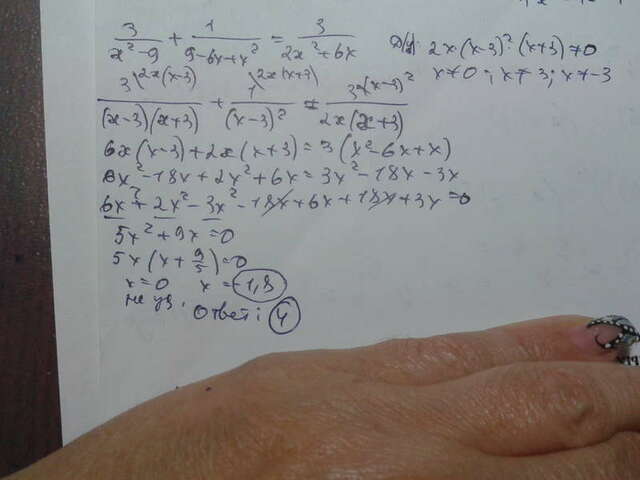 3/(x²-9) + 1/(9-6x+x²) = 3/(2x²+6x) 2x(x-3)²(x+3)≠0
x≠0; x≠3; x≠-3
3\2x(x-3)/((x-3)(x+3)) + 1\2x(x+3)/(x-3)² = 3\(x-3)²/(2x(x+3))
6x(x-3)+2x(x+3)=3(x²-6x+x)
6x²-18x+2x²+6x=3x²-18x-3x
6x²+2x²-3x²-18x+6x+18x+3x=0
5x²+9x=0
5x(x+9/5)=0
x=0 x=-1,8
не уд. Ответ: 4